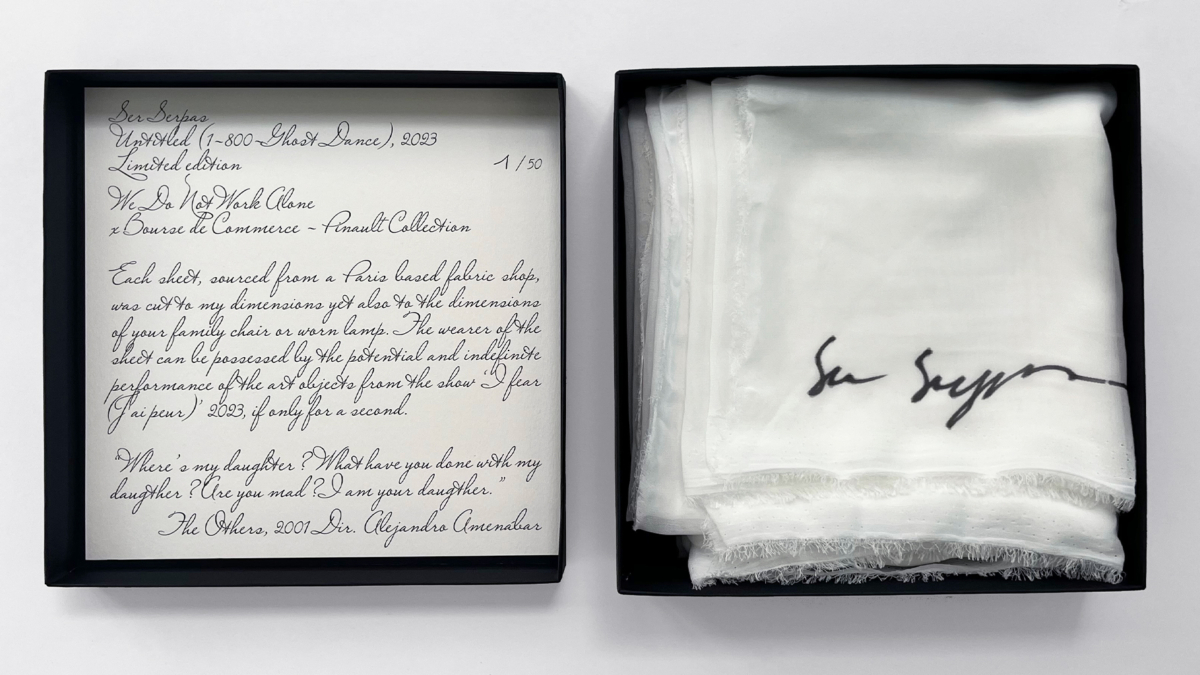 Ser Serpas
Untitled (1-800-Ghost Dance), 2023
Limited edition 1/50
We Do Not Work Alone
x Bourse de Commerce - Pinault Collection
Each sheet, sourced from a Paris based fabric shop,
was cut to my dimensions yet also to the dimensions
of your family chair or worn lamp. The wearer of the
sheet can be possessed by the potential and indefinite
performance of the art objects from the show 'I fear
(J'ai peur)' 2023, if only for a second.
"Where's my daughter? What have you done with my
daugther? Are you mad? I am your daugther."
The Others, 2001 Dir. Alejandro Amenabar
Ser Serpas